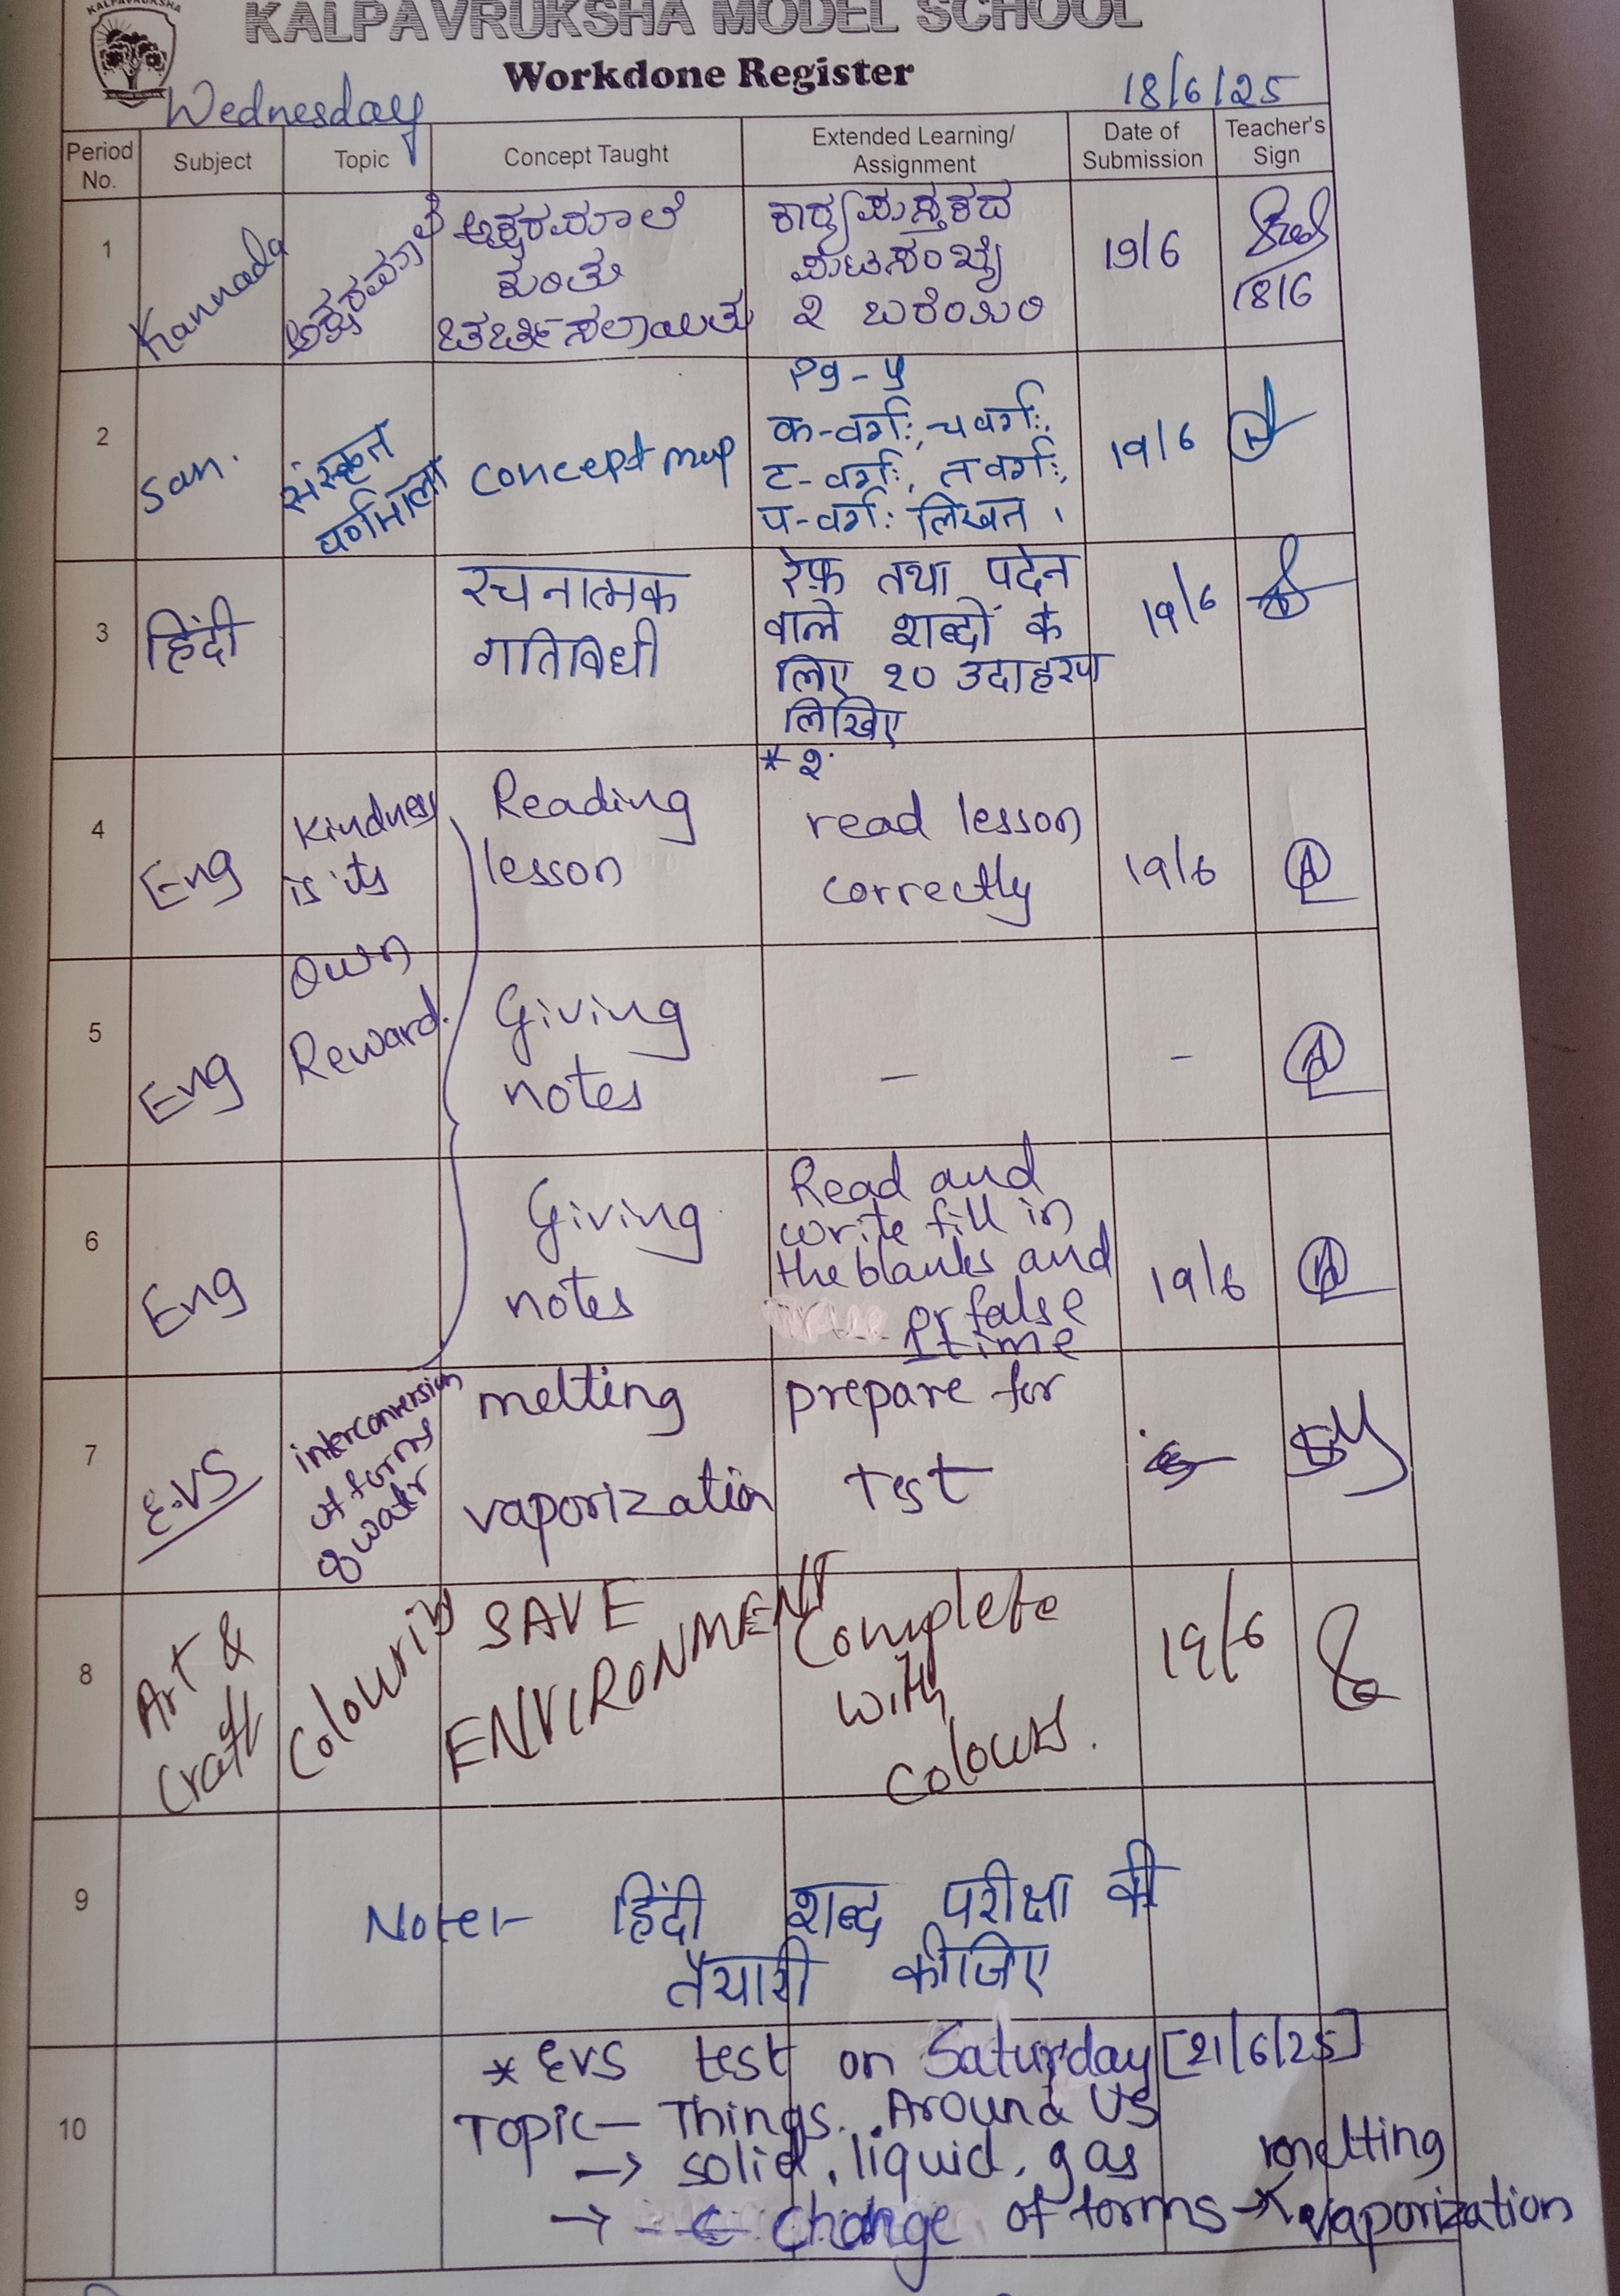 KALPAVRUKSHA
KALPAVRUKSHA MODEL SCHOOL
Workdone Register
Wednesday
18/6/25
Period No.
Subject
Topic
Concept Taught
Extended Learning/
Assignment
Date of
Submission
Teacher's
Sign
1
Kannada
ಅಕ್ಷರಮಾಲೆ
ಅಕ್ಷರಮಾಲೆ
ಕುರಿತು
ಚರ್ಚಿಸಲಾಯಿತು
ಕಾರ್ಯಪುಸ್ತಕದ
ಪುಟಸಂಖ್ಯೆ
೨ ಬರೆಯಿರಿ
19/6
18/6
2
San.
संस्कृत
वर्णमाला
Concept map
Pg - y
क-वर्गः, च वर्गः,
ट-वर्गः, त वर्गः,
प-वर्गः लिखत ।
19/6
3
हिंदी
रचनात्मक
गतिविधी
रेफ़ तथा पदेन
वाले शब्दों के
लिए १० उदाहरण
लिखिए
19/6
4
Eng
Kindness
is its
Own
Reward.
Reading
lesson
read lesson
correctly
19/6
5
Eng
Giving
notes
–
–
6
Eng
Giving
notes
Read and
write fill in
the blanks and
or false
1 time
19/6
7
E.VS
interconversion
of forms
of water
melting
vaporization
prepare for
Test
8
Art &
Craft
Colouring
SAVE
ENVIRONMENT
Complete
with
colours.
19/6
9
Note:- हिंदी शब्द परीक्षा की
तैयारी कीजिए
10
* EVS test on Saturday [21/6/25]
Topic – Things Around Us
→ solid, liquid, gas
→ change of forms → melting
vaporization